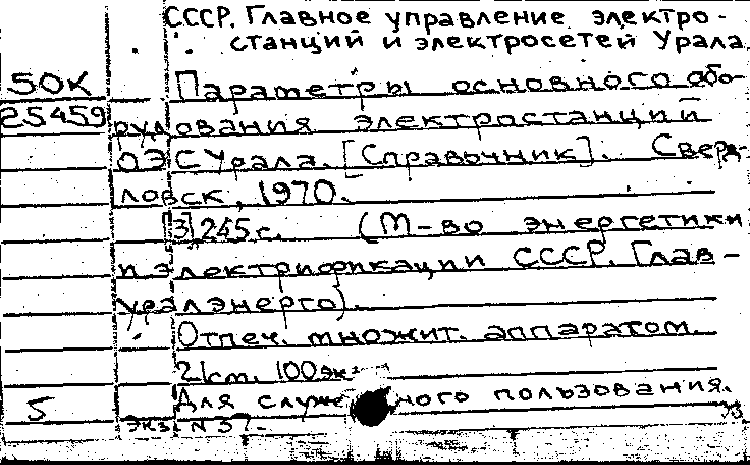 СССР. Главное управление электро-
станций и электросетей Урала.
50К Параметры основного обо-
25459 рудования электростанций
ОЭС Урала. [Справочник]. Сверд-
ловск, 1970.
[3] 245 с. (М-во энергетики
и электрификации СССР. Глав-
уралэнерго).
Отпеч. множит. аппаратом.
21 cm. 100 экз.
5 Для служебного пользования.
экз. N 37.